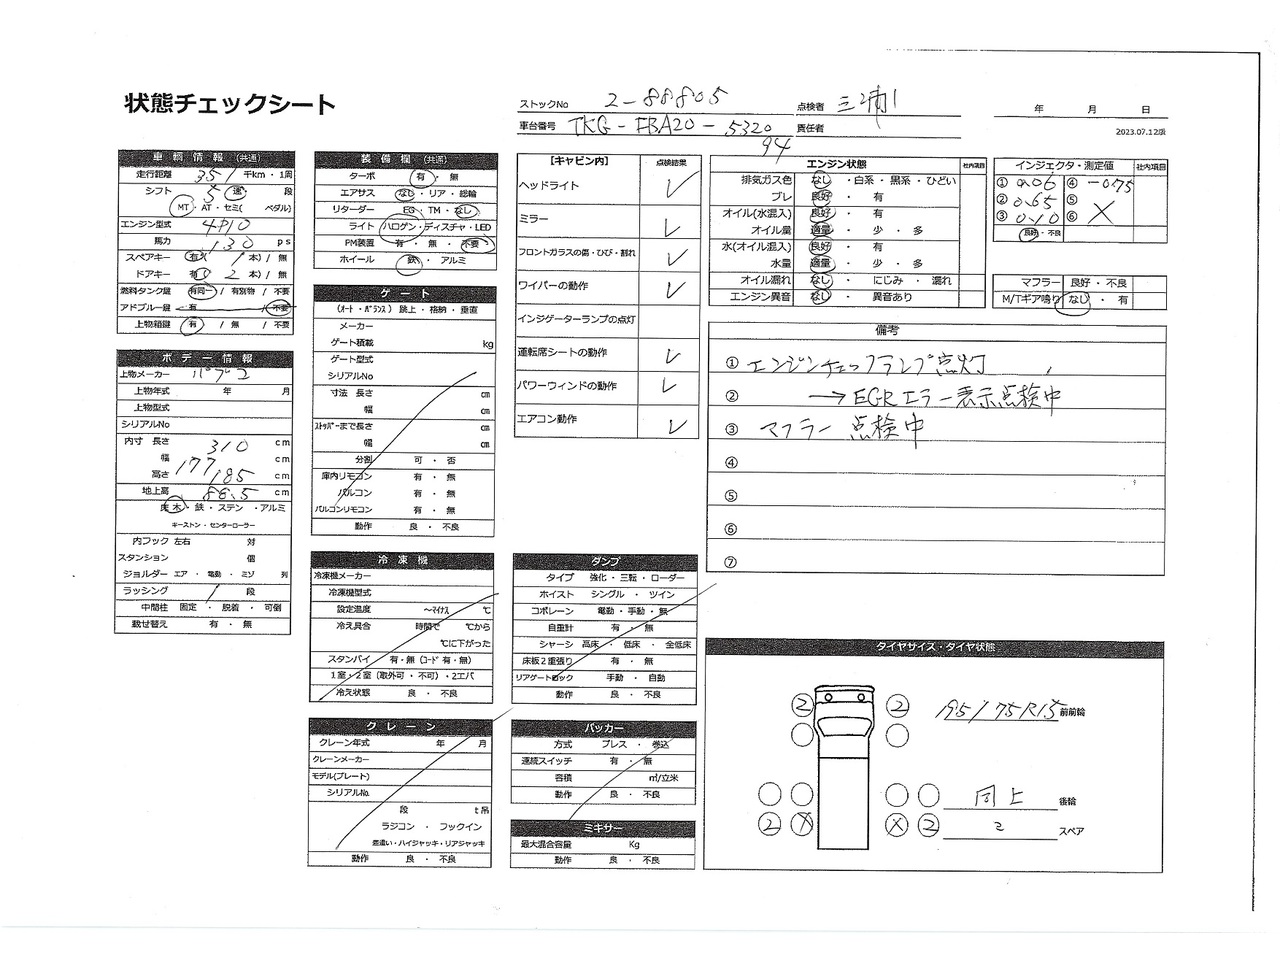 状態チェックシート
ストックNo 2-88805 点検者 三浦 年 月 日
車台番号 TKG-FBA20-5320 責任者 2023.07.12版
94
車輌情報 (共通)
走行距離 351 千km・1周
シフト 5 速 段
MT・AT・セミ( ペダル)
エンジン型式 4P10
馬力 130 ps
スペアキー 有( 1 本) / 無
ドアキー 有( 2 本) / 無
燃料タンク鍵 有同一 / 有別物 / 不要
アドブルー鍵 有 / 不要
上物箱鍵 有 / 無 / 不要
ボデー情報
上物メーカー パブコ
上物年式 年 月
上物型式
シリアルNo
内寸 長さ 310 cm
幅 177 cm
高さ 185 cm
地上高 86.5 cm
床 木・鉄・ステン・アルミ
キーストン・センターローラー
内フック 左右 対
スタンション 個
ジョルダー エア・電動・ミゾ 列
ラッシング 1 段
中間柱 固定・脱着・可倒
載せ替え 有・無
装備欄 (共通)
ターボ 有・無
エアサス なし・リア・総輪
リターダー EG・TM・なし
ライト ハロゲン・ディスチャ・LED
PM装置 有・無・不要
ホイール 鉄・アルミ
ゲート
(オート・バランス) 跳上・格納・垂直
メーカー
ゲート積載 kg
ゲート型式
シリアルNo
寸法 長さ cm
幅 cm
ストッパーまで長さ cm
幅 cm
分割 可・否
庫内リモコン 有・無
バルコン 有・無
バルコンリモコン 有・無
動作 良・不良
冷凍機
冷凍機メーカー
冷凍機型式
設定温度 ~マイナス ℃
冷え具合 時間で ℃から
℃に下がった
スタンバイ 有・無 (コード 有・無)
1室・2室 (取外可・不可)・2エバ
冷え状態 良・不良
クレーン
クレーン年式 年 月
クレーンメーカー
モデル(プレート)
シリアルNo.
段 t吊
ラジコン・フックイン
差違い・ハイジャッキ・リアジャッキ
動作 良・不良
【キャビン内】 点検結果
ヘッドライト ✓
ミラー ✓
フロントガラスの傷・ひび・割れ ✓
ワイパーの動作 ✓
インジゲーターランプの点灯
運転席シートの動作 ✓
パワーウィンドの動作 ✓
エアコン動作 ✓
ダンプ
タイプ 強化・三転・ローダー
ホイスト シングル・ツイン
コボレーン 電動・手動・無
自重計 有・無
シャーシ 高床・低床・全低床
床板2重張り 有・無
リアゲートロック 手動・自動
動作 良・不良
パッカー
方式 プレス・巻込
連続スイッチ 有・無
容積 ㎥/立米
動作 良・不良
ミキサー
最大混合容量 Kg
動作 良・不良
エンジン状態 社内項目
排気ガス色 なし・白系・黒系・ひどい
ブレ 良好・有
オイル(水混入) 良好・有
オイル量 適量・少・多
水(オイル混入) 良好・有
水量 適量・少・多
オイル漏れ なし・にじみ・漏れ
エンジン異音 なし・異音あり
インジェクタ・測定値 社内項目
① 0.06 ④ -0.75
② 0.65 ⑤
③ 0.10 ⑥
良好・不良
マフラー 良好・不良
M/Tギア鳴り なし・有
備考
① エンジンチェックランプ点灯
② →EGRエラー表示点検中
③ マフラー 点検中
④
⑤
⑥
⑦
タイヤサイズ・タイヤ状態
2 2 195/75R15 前前輪
同上 後輪
2 X X 2 2 スペア